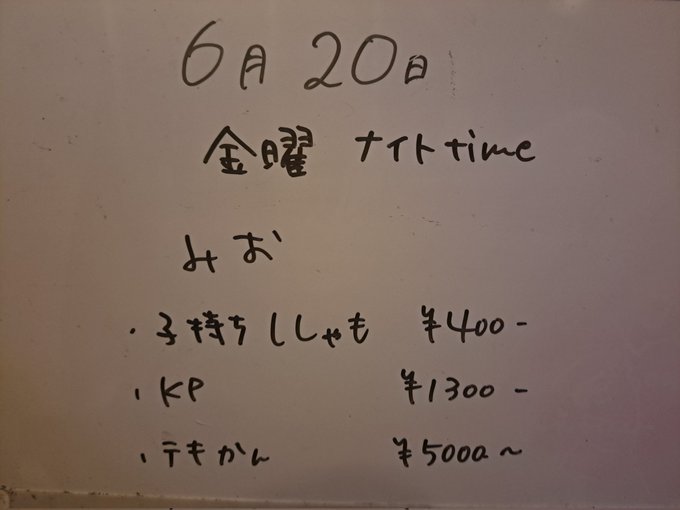 6月20日
金曜 ナイトtime
みお
・子持ちししゃも ¥400-
・KP ¥1300-
・テキかん ¥5000~